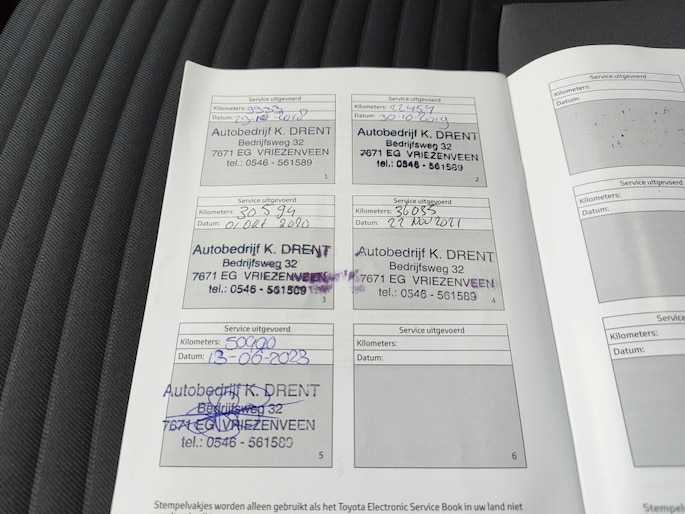 Service uitgevoerd
Kilometers: 9333
Datum: 29-10-2018
Autobedrijf K. DRENT
Bedrijfsweg 32
7671 EG VRIEZENVEEN
tel.: 0546 - 561589
1
Service uitgevoerd
Kilometers: 22454
Datum: 30-10-2019
Autobedrijf K. DRENT
Bedrijfsweg 32
7671 EG VRIEZENVEEN
tel.: 0546 - 561589
2
Service uitgevoerd
Kilometers: 30594
Datum: 01 OKT 2020
Autobedrijf K. DRENT
Bedrijfsweg 32
7671 EG VRIEZENVEEN
tel.: 0546 - 561589
3
Service uitgevoerd
Kilometers: 36035
Datum: 22 NOV 2021
Autobedrijf K. DRENT
Bedrijfsweg 32
7671 EG VRIEZENVEEN
tel.: 0546 - 561589
4
Service uitgevoerd
Kilometers: 50090
Datum: 13-06-2023
Autobedrijf K. DRENT
Bedrijfsweg 32
7671 EG VRIEZENVEEN
tel.: 0546 - 561589
5
Service uitgevoerd
Kilometers:
Datum:
6
Stempelvakjes worden alleen gebruikt als het Toyota Electronic Service Book in uw land niet
Service uitgevoerd
Kilometers:
Datum:
Service uitgevoerd
Kilometers:
Datum:
Service
Kilometers:
Datum:
Stempelv